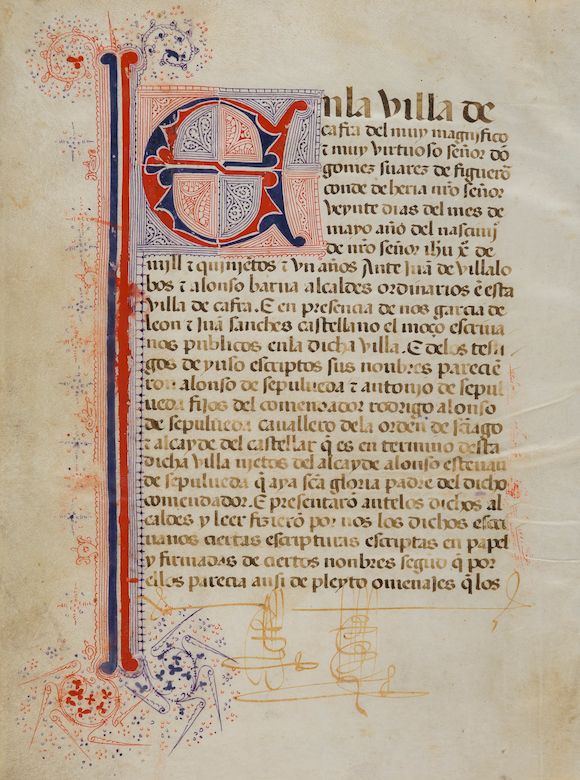 Enla villa de
cafra del muy magnifico
⁊ muy virtuoso señor dõ
gomez suarez de figuero
conde de heria nr̃o señor
veynte dias del mes de
mayo año del nascimj
de nr̃o señor ihu xp̃ de
mjll ⁊ quinjẽtos ⁊ vn años Ante juã de villalo
bos ⁊ alonso barua alcaldes ordinarios ẽ esta
villa de cafra. E en presencia de nos garcia de
leon ⁊ juã sanches castellano el moço escriua
nos publicos enla dicha villa. E delos testi
gos de yuso escriptos sus nonbres pareciẽ
ron alonso de sepulueda ⁊ antonio de sepul
ueda fijos del comendador rodrigo alonso
de sepulueda cauallero dela ordẽn de sãtiago
⁊ alcayde del castellar q̃ es en termino desta
dicha villa njetos del alcayde alonso esteuan
de sepulueda q̃ aya scã gloria padre del dicho
comendador. E presentarõ antelos dichos al
caldes y leer fizierõ por nos los dichos escri
uanos ciertas escripturas escriptas en papel
y firmadas de ciertos nonbres segũd q̃ por
ellos parecia ansi de pleyto omenajes q̃ los